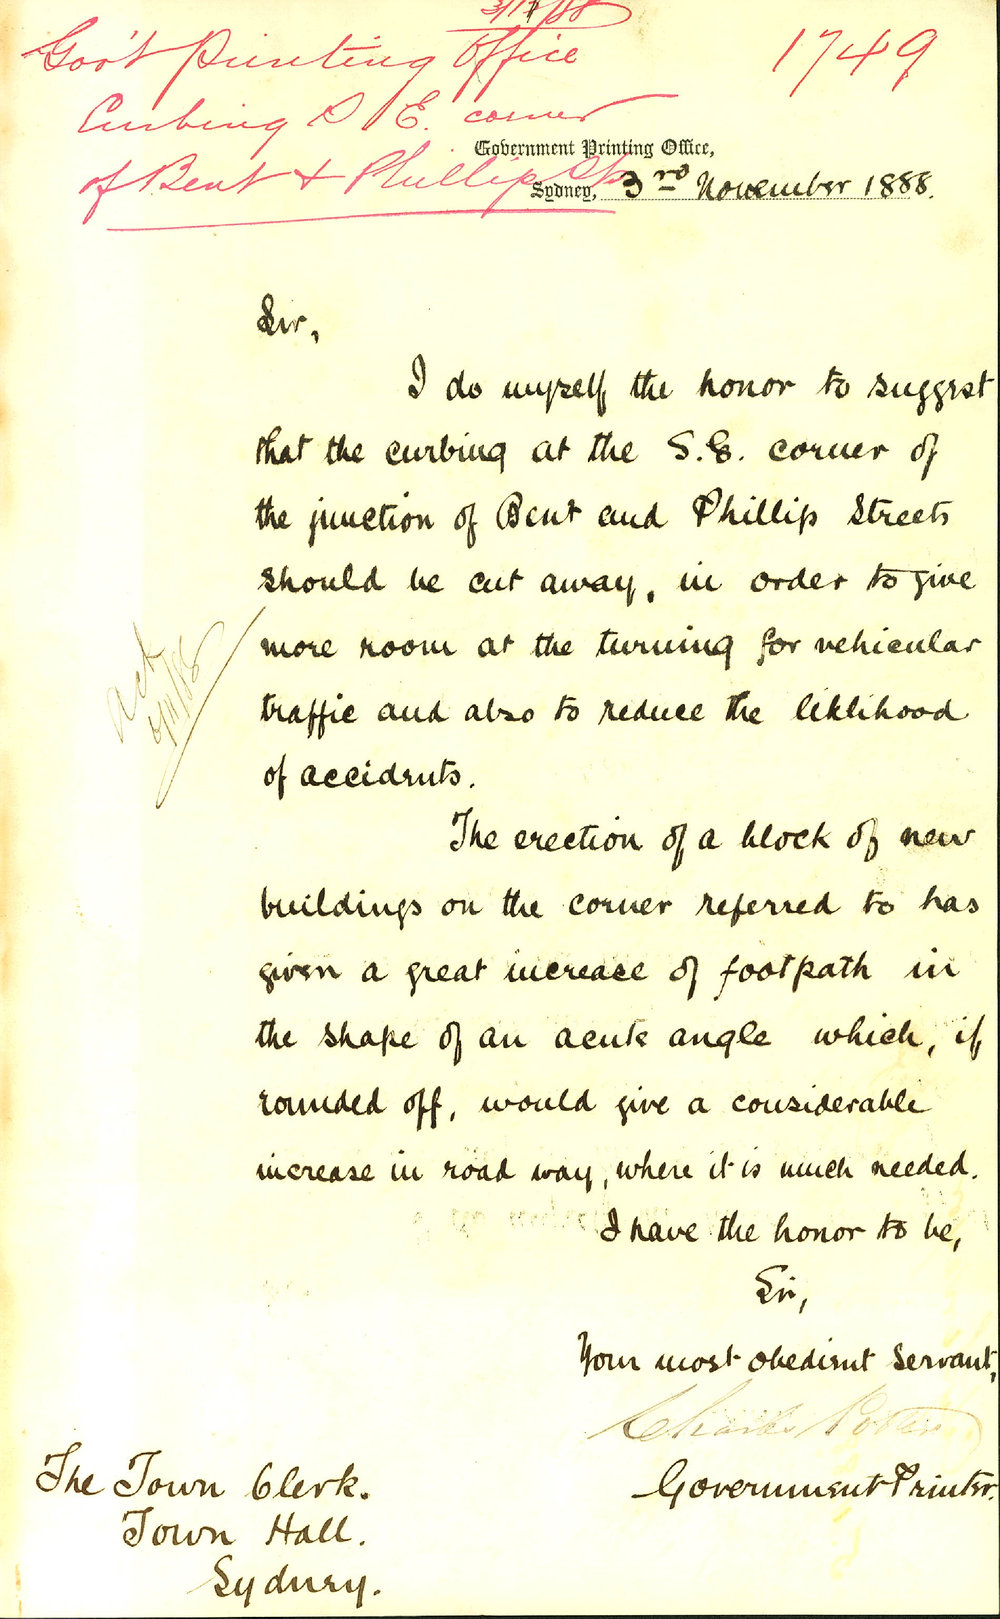 3/11/88
Gov't Printing Office
1749
Curbing S E. corner
of Bent & Phillip Sts
Government Printing Office,
Sydney, 3rd November 1888.
Sir,
I do myself the honor to suggest
that the curbing at the S.E. corner of
the junction of Bent and Phillip Streets
should be cut away, in order to give
more room at the turning for vehicular
traffic and also to reduce the liklihood
of accidents.
The erection of a block of new
buildings on the corner referred to has
given a great increase of footpath in
the shape of an acute angle which, if
rounded off, would give a considerable
increase in road way, where it is much needed.
I have the honor to be,
Sir,
Your most obedient servant,
Charles Potter
Government Printer.
The Town Clerk.
Town Hall.
Sydney.